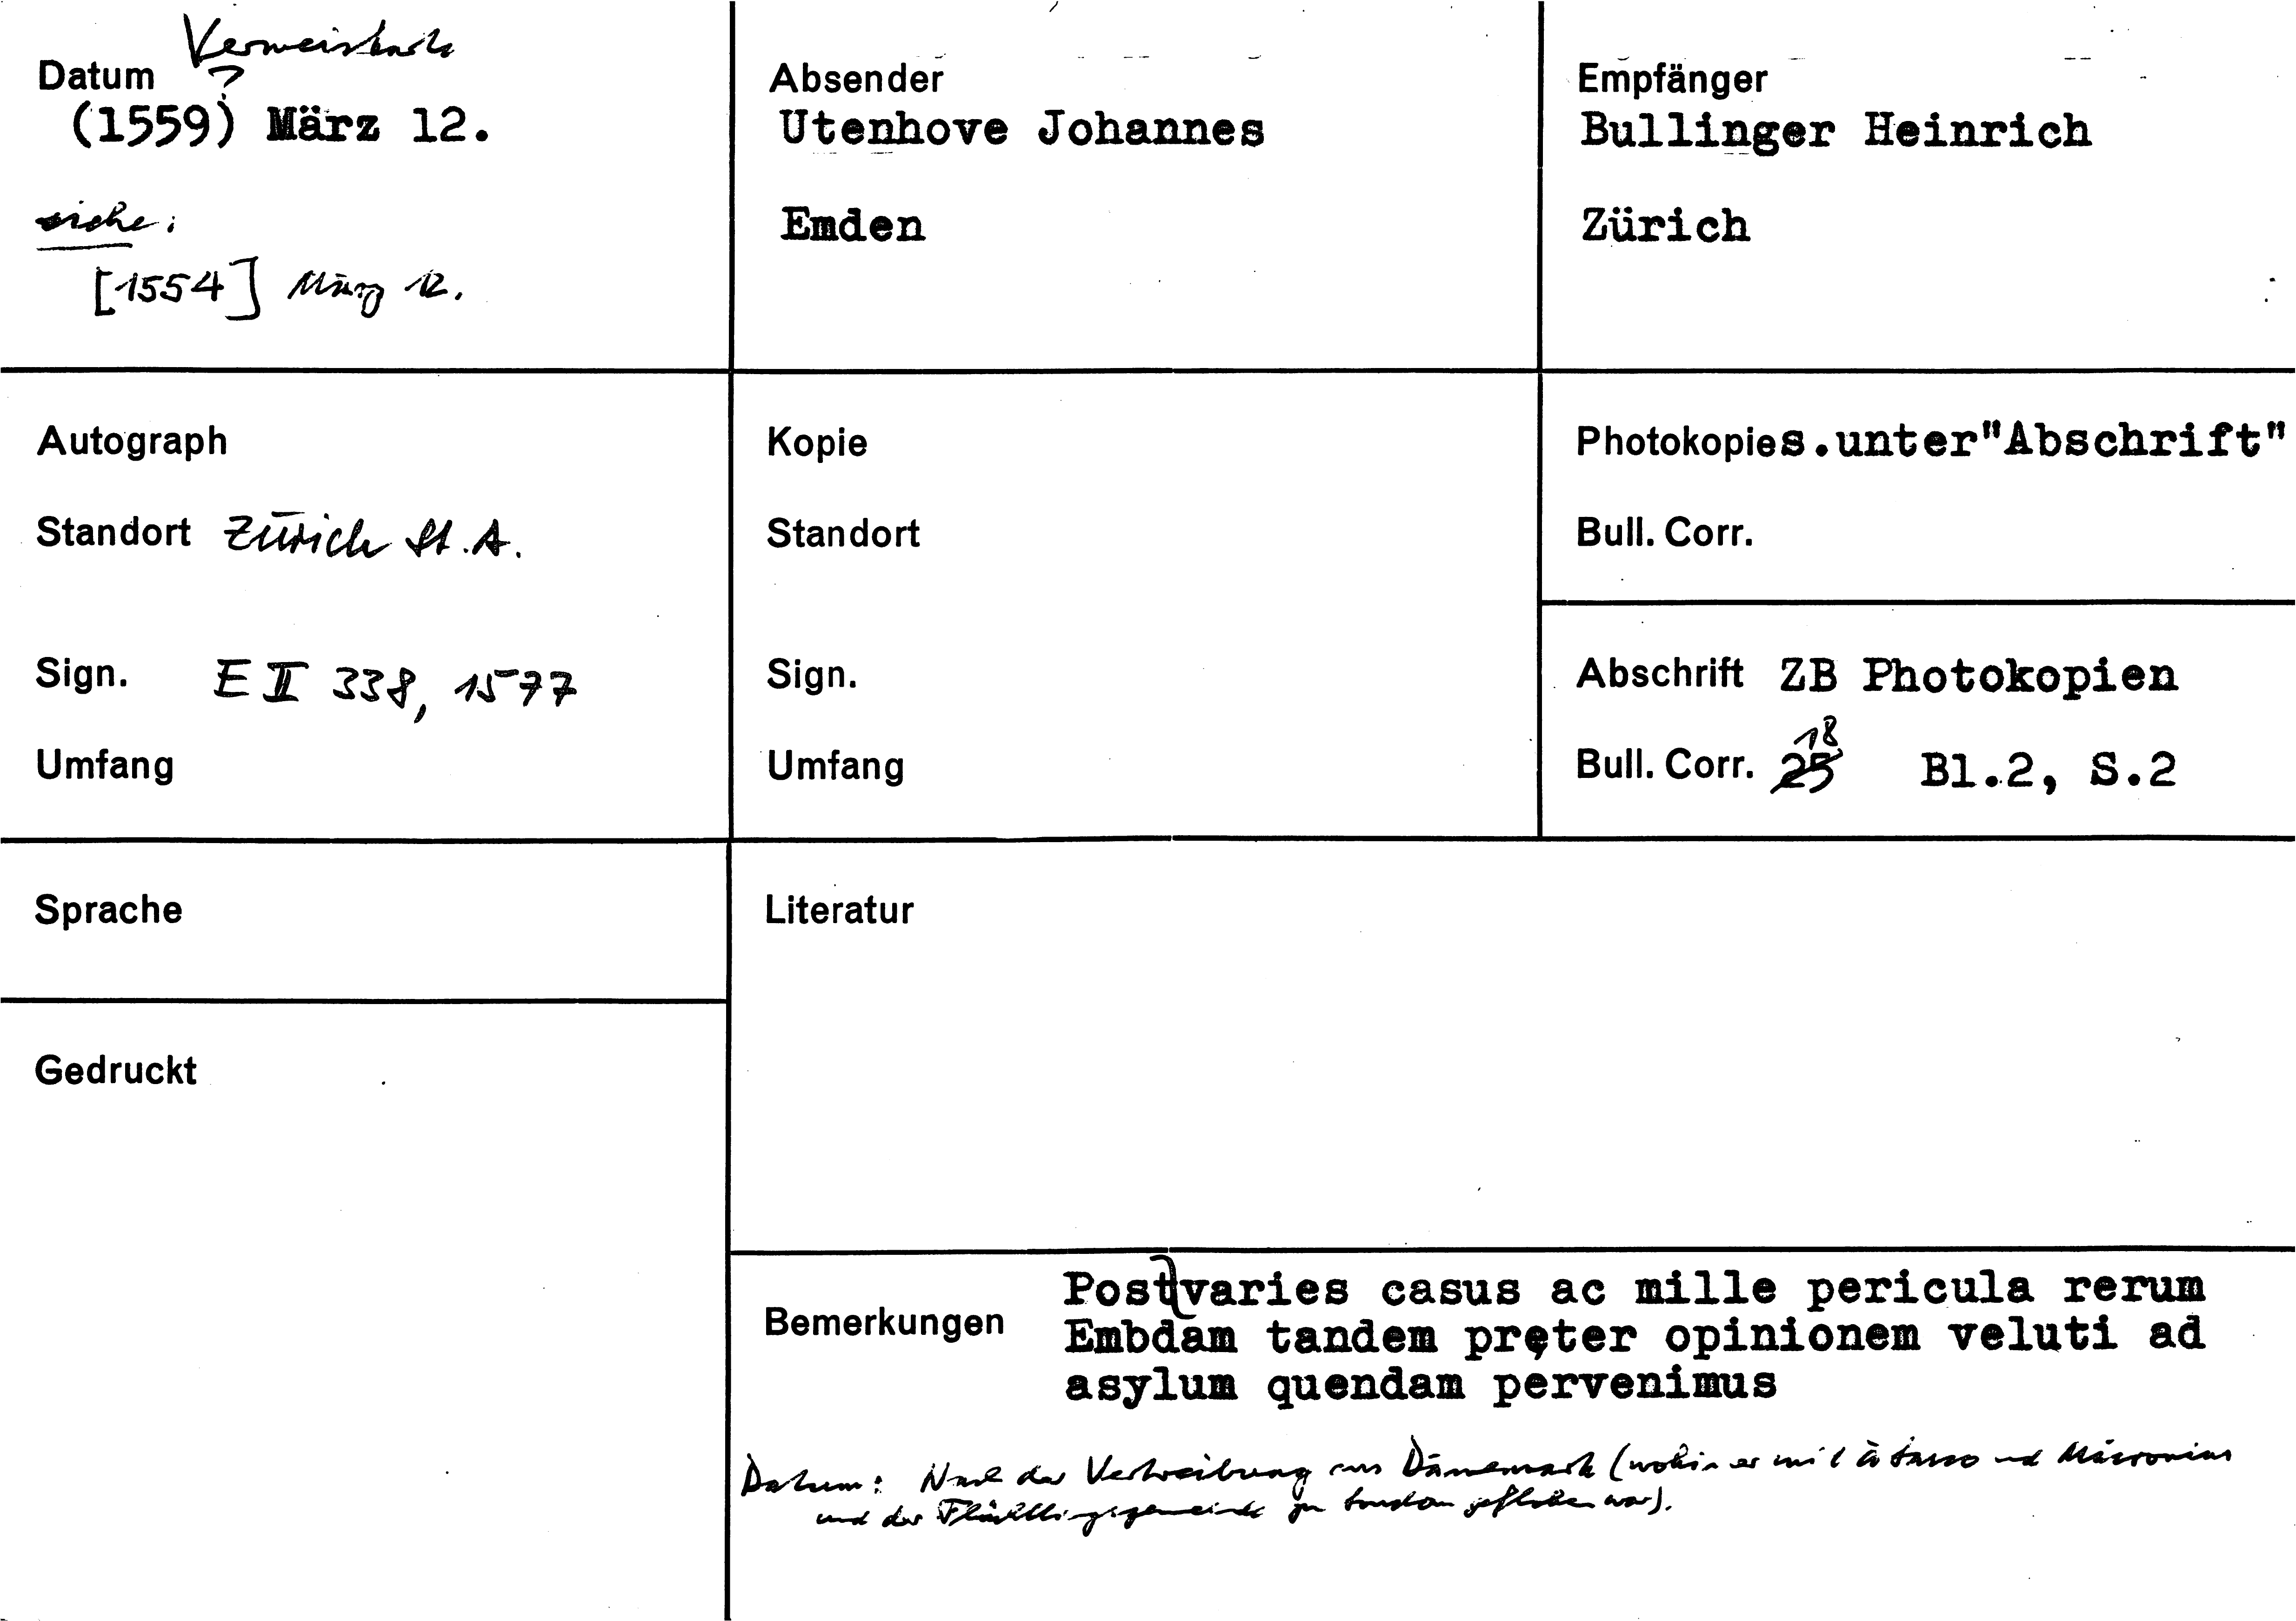 Verweiskarte
Datum ?
(1559) März 12.
siehe:
[1554] März 12.
Absender
Utenhove Johannes
Emden
Empfänger
Bullinger Heinrich
Zürich
Autograph
Standort Zürich St.A.
Sign. E II 338, 1577
Umfang
Kopie
Standort
Sign.
Umfang
Photokopie s.unter"Abschrift"
Bull. Corr.
Abschrift ZB Photokopien
18
Bull. Corr. 25 Bl.2, S.2
Sprache
Literatur
Gedruckt
Bemerkungen
Post varies casus ac mille pericula rerum
Embdam tandem pręter opinionem veluti ad
asylum quendam pervenimus
Datum: Nach der Vertreibung aus Dänemark (wohin er mit à Lasco und Micronius
und der Flüchtlingsgemeinde zu London geflohen war).